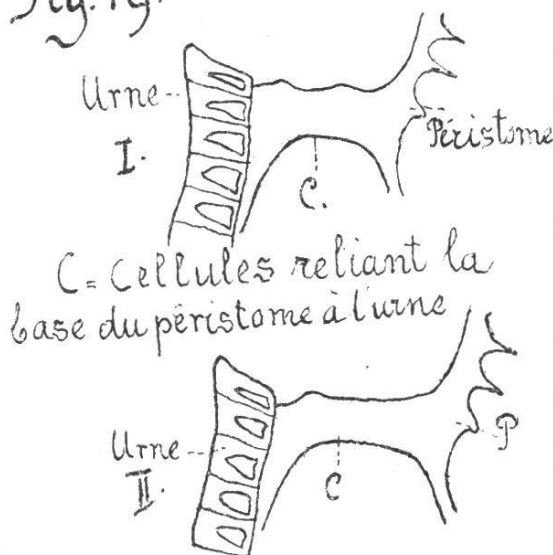 Urne
Péristome
I.
C.
C = Cellules reliant la
base du péristome à l'urne
Urne
P
II.
C